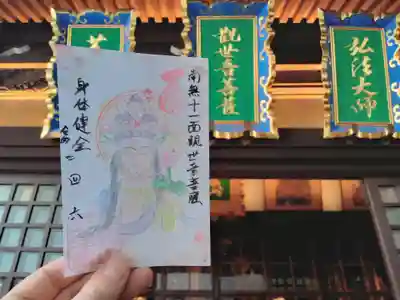 觀世音菩薩
弘法大師
南無十一面観世音菩薩
身体健全
四六